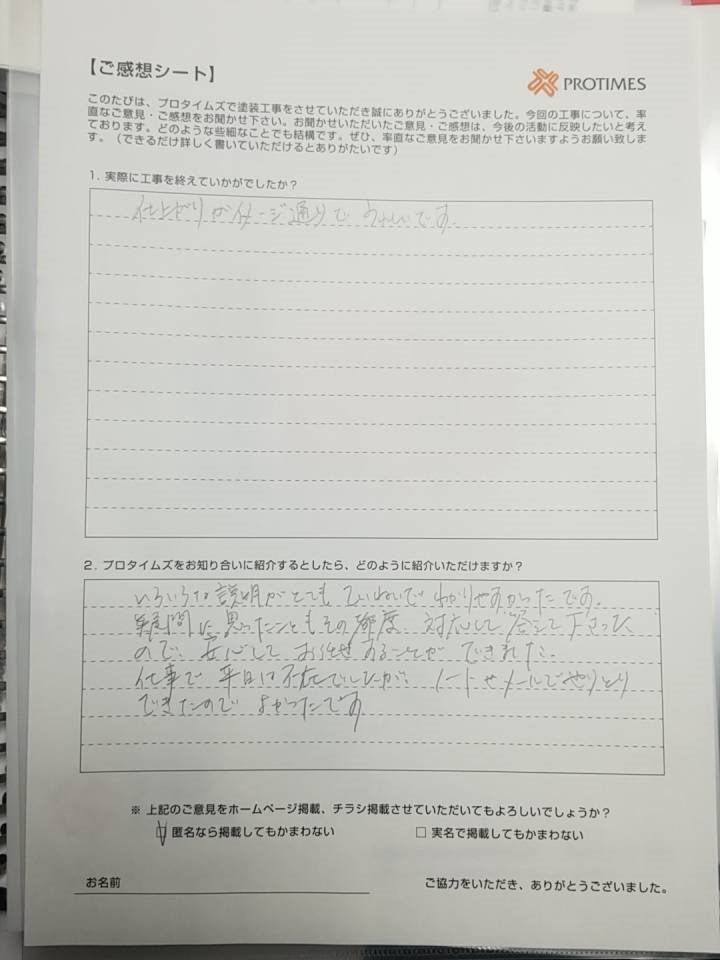 【ご感想シート】
PROTIMES
このたびは、プロタイムズで塗装工事をさせていただき誠にありがとうございました。今回の工事について、率
直なご意見・ご感想をお聞かせ下さい。お聞かせいただいたご意見・ご感想は、今後の活動に反映したいと考え
ております。どのような些細なことでも結構です。ぜひ、率直なご意見をお聞かせ下さいますようお願い致しま
す。（できるだけ詳しく書いていただけるとありがたいです）
1. 実際に工事を終えていかがでしたか？
仕上がりがイメージ通りでうれしいです。
2. プロタイムズをお知り合いに紹介するとしたら、どのように紹介いただけますか？
いろいろな説明がとてもていねいでわかりやすかったです。
疑問に思ったこともその都度、対応して答えて下さった
ので、安心してお任せすることができました。
仕事で平日は不在でしたが、ノートやメールでやりとり
できたのでよかったです。
※ 上記のご意見をホームページ掲載、チラシ掲載させていただいてもよろしいでしょうか？
□ 匿名なら掲載してもかまわない □ 実名で掲載してもかまわない
お名前 ご協力をいただき、ありがとうございました。